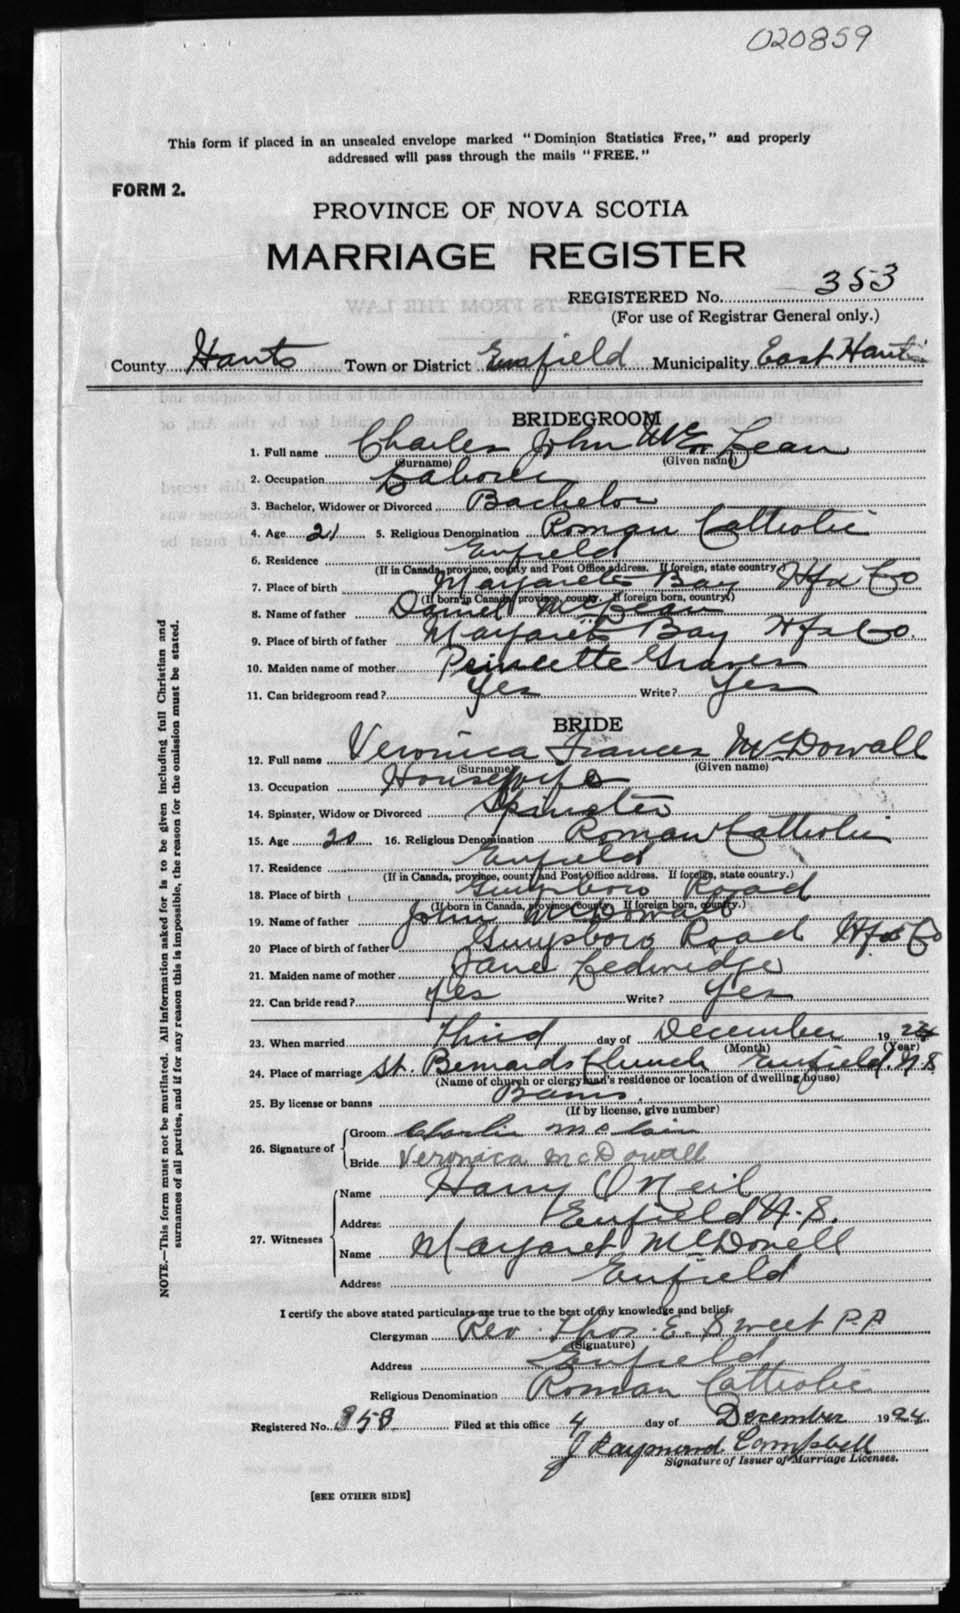 020859
This form if placed in an unsealed envelope marked "Dominion Statistics Free," and properly
addressed will pass through the mails "FREE."
FORM 2.
PROVINCE OF NOVA SCOTIA
MARRIAGE REGISTER
REGISTERED No. 353
(For use of Registrar General only.)
County Hants Town or District Enfield Municipality East Hants
BRIDEGROOM
1. Full name Charles John McLean
(Surname) (Given name)
2. Occupation Laborer
3. Bachelor, Widower or Divorced Bachelor
4. Age 21 5. Religious Denomination Roman Catholic
6. Residence Enfield
(If in Canada, province, county and Post Office address. If foreign, state country.)
7. Place of birth Margarets Bay Hfx Co
(If born in Canada, province, county. If foreign born, country.)
8. Name of father Daniel McLean
9. Place of birth of father Margarets Bay Hfx Co.
10. Maiden name of mother Graves
11. Can bridegroom read? Yes Write? Yes
BRIDE
12. Full name Veronica Frances McDowall
(Surname) (Given name)
13. Occupation Housewife
14. Spinster, Widow or Divorced Spinster
15. Age 20 16. Religious Denomination Roman Catholic
17. Residence Enfield
(If in Canada, province, county and Post Office address. If foreign, state country.)
18. Place of birth Guysboro Road
(If born in Canada, province, county. If foreign born, country.)
19. Name of father John McDowall
20 Place of birth of father Guysboro Road Hfx Co
21. Maiden name of mother Jane Ledwidge
22. Can bride read? Yes Write? Yes
23. When married Third day of December 1924
(Month) (Year)
24. Place of marriage St. Bernards Church Enfield. N S
(Name of church or clergyman's residence or location of dwelling house)
25. By license or banns Banns.
(If by license, give number)
26. Signature of Groom Charlie McLain
Bride Veronica McDowall
27. Witnesses Name Harry O Neil
Address Enfield N. S.
Name Margaret McDowell
Address Enfield
I certify the above stated particulars are true to the best of my knowledge and belief.
Clergyman Rev. Thos. E. Sweet P.P
(Signature)
Address Enfield
Religious Denomination Roman Catholic
Registered No. 353 Filed at this office 4 day of December 1924
J Raymond Campbell
Signature of Issuer of Marriage Licenses.
[SEE OTHER SIDE]
NOTE.—This form must not be mutilated. All information asked for is to be given including full Christian and
surnames of all parties, and if for any reason this is impossible, the reason for the omission must be stated.